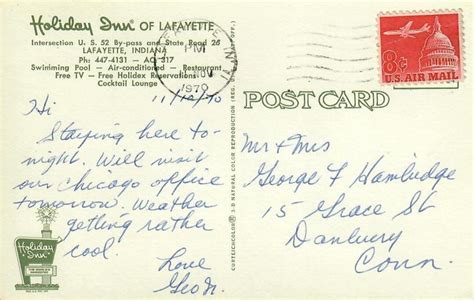 Holiday Inn OF LAFAYETTE
Intersection U. S. 52 By-pass and State Road 26
LAFAYETTE, INDIANA
Ph: 447-4131 — AO 317
Swimming Pool — Air-conditioned — Restaurant
Free TV — Free Holidex Reservations
Cocktail Lounge
LAFAYETTE, IN
PM
NOV
1970
8¢
U.S. AIR MAIL
POST CARD
11/10/70
Hi
Staying here to-
night. Will visit
our Chicago office
tomorrow. Weather
getting rather
cool.
Love
Geo.
Holiday Inn
CURTEICHCOLOR® 3-D NATURAL COLOR REPRODUCTION
Mr & Mrs
George F Hambidge
15 Grace St
Danbury
Conn.